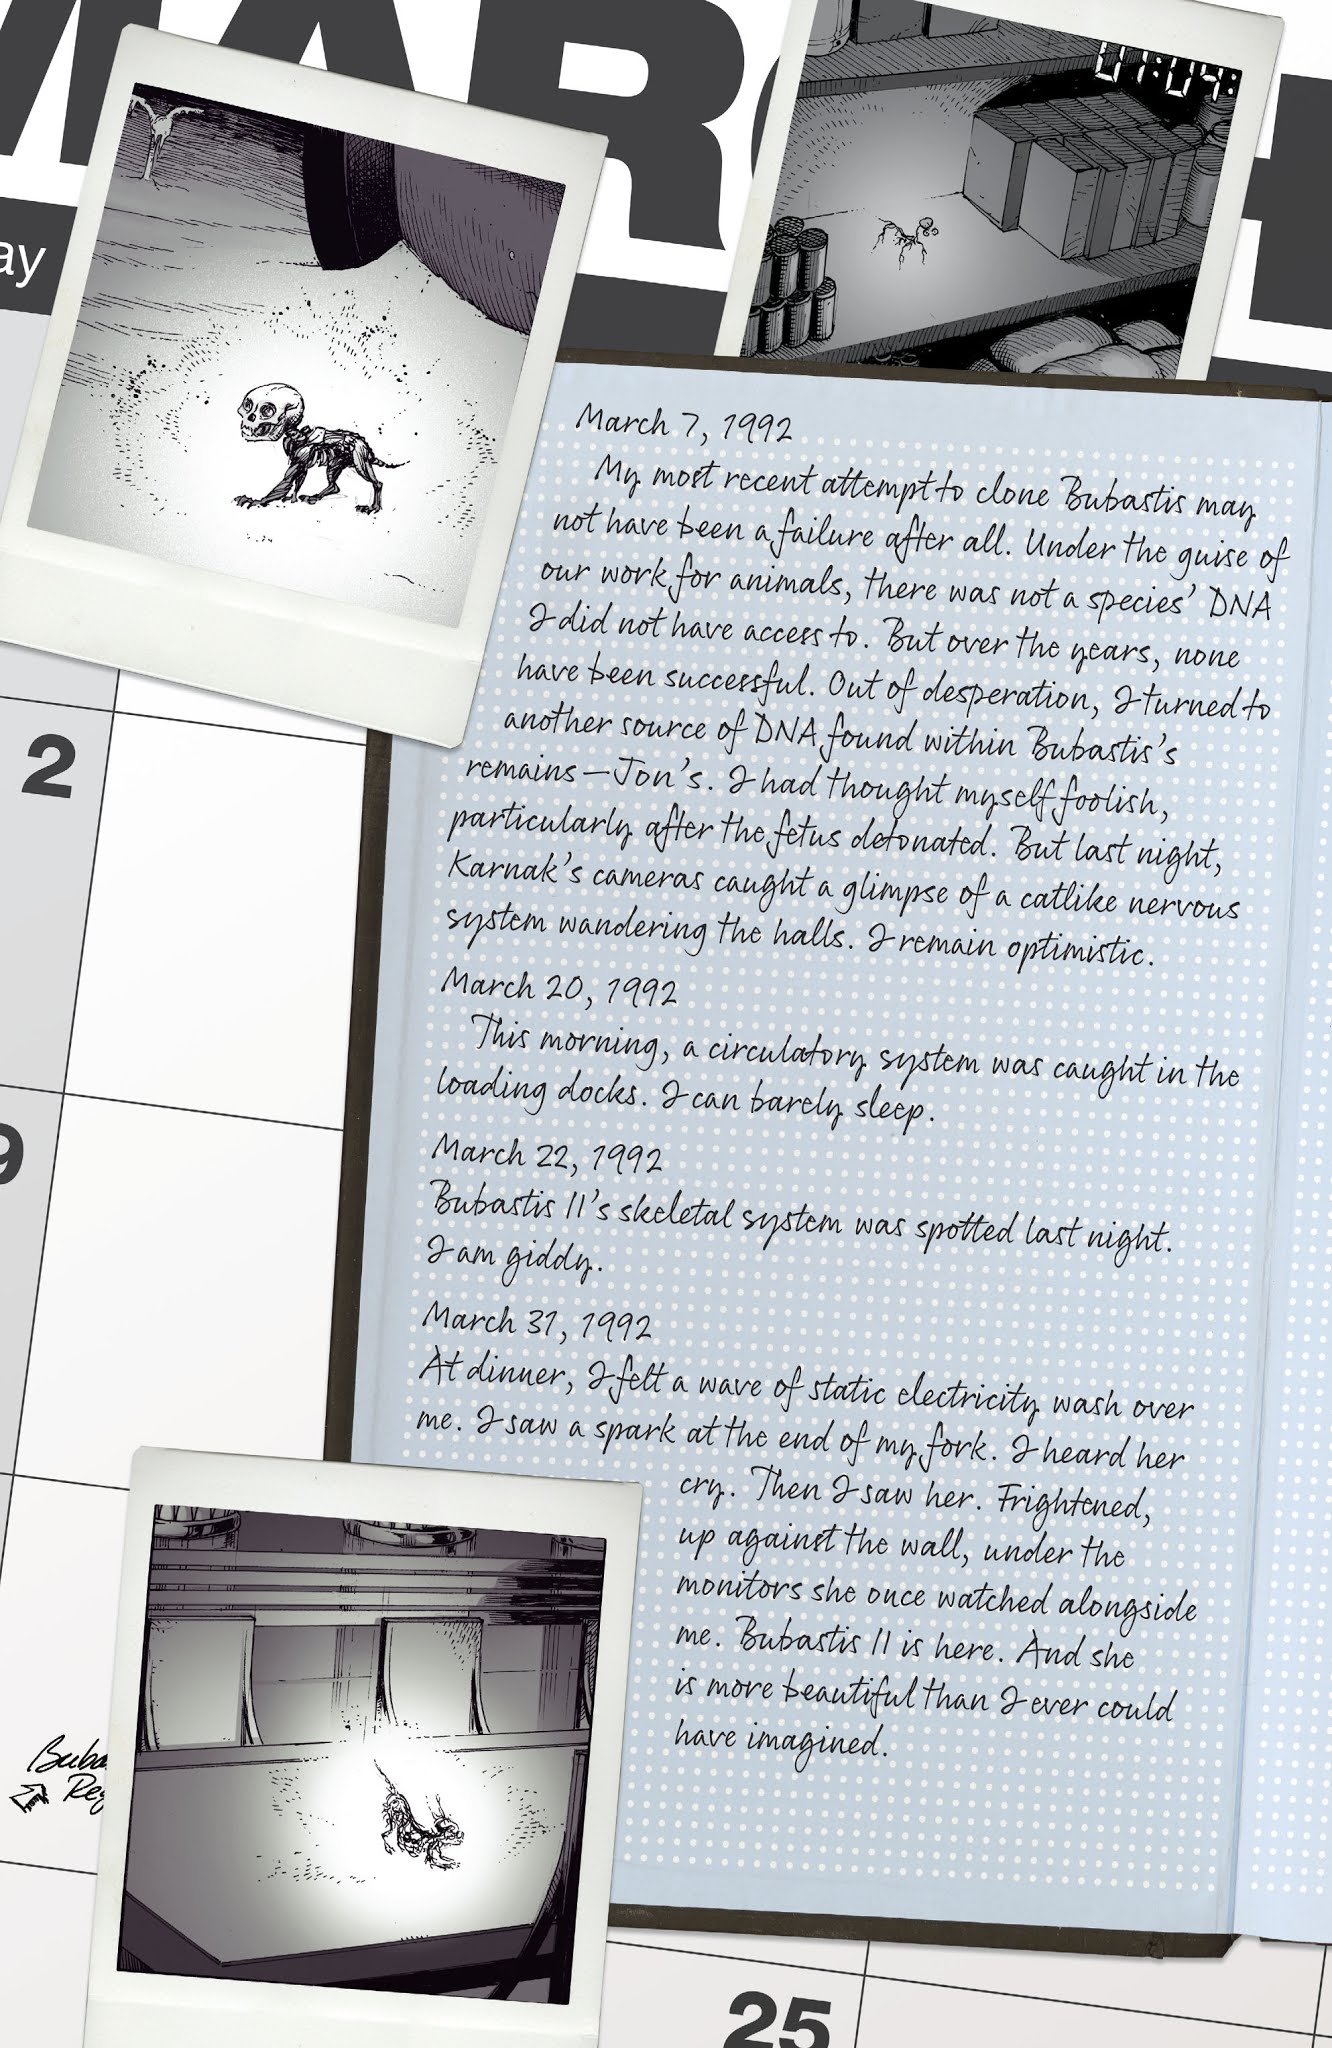 MARCH
ay
01:04:
2
9
March 7, 1992
My most recent attempt to clone Bubastis may
not have been a failure after all. Under the guise of
our work for animals, there was not a species' DNA
I did not have access to. But over the years, none
have been successful. Out of desperation, I turned to
another source of DNA found within Bubastis's
remains—Jon's. I had thought myself foolish,
particularly after the fetus detonated. But last night,
Karnak's cameras caught a glimpse of a catlike nervous
system wandering the halls. I remain optimistic.
March 20, 1992
This morning, a circulatory system was caught in the
loading docks. I can barely sleep.
March 22, 1992
Bubastis II's skeletal system was spotted last night.
I am giddy.
March 31, 1992
At dinner, I felt a wave of static electricity wash over
me. I saw a spark at the end of my fork. I heard her
cry. Then I saw her. Frightened,
up against the wall, under the
monitors she once watched alongside
me. Bubastis II is here. And she
is more beautiful than I ever could
have imagined.
Buba
Reg
25